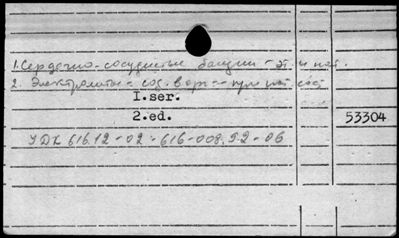 1. Сердечно-сосудистые болезни - эт. и пат.
2. Электролиты - сод. в орг. - при пат. сост.
I.ser.
2.ed.
53304
УДК 616.12-02-616-008.92-06